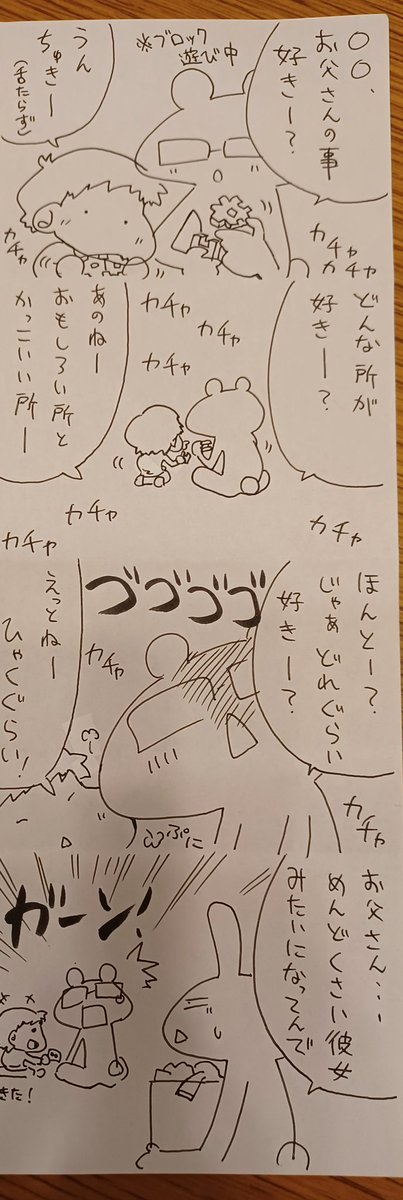 ○○、
お父さんの事
好きー?
※ブロック
遊び中
うん
ちゅきー
(舌たらず)
カチャ
カチャ
カチャ
どんな所が
好きー?
カチャ
カチャ
カチャ
あのねー
おもしろい所と
かっこいい所ー
カチャ
カチャ
カチャ
ほんとー?
じゃあどれぐらい
好きー?
ゴゴゴゴ
カチャ
えっとねー
ひゃくぐらい!
ぷに
カチャ
お父さん…
めんどくさい彼女
みたいになってんで
ガーン!
きた!